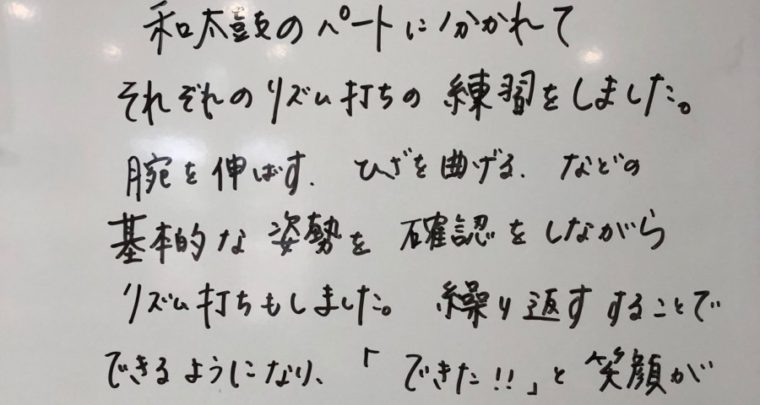 和太鼓のパートに分かれて
それぞれのリズム打ちの練習をしました。
腕を伸ばす、ひざを曲げる、などの
基本的な姿勢を確認をしながら
リズム打ちもしました。繰り返すすることで
できるようになり、「できた!!」と笑顔が